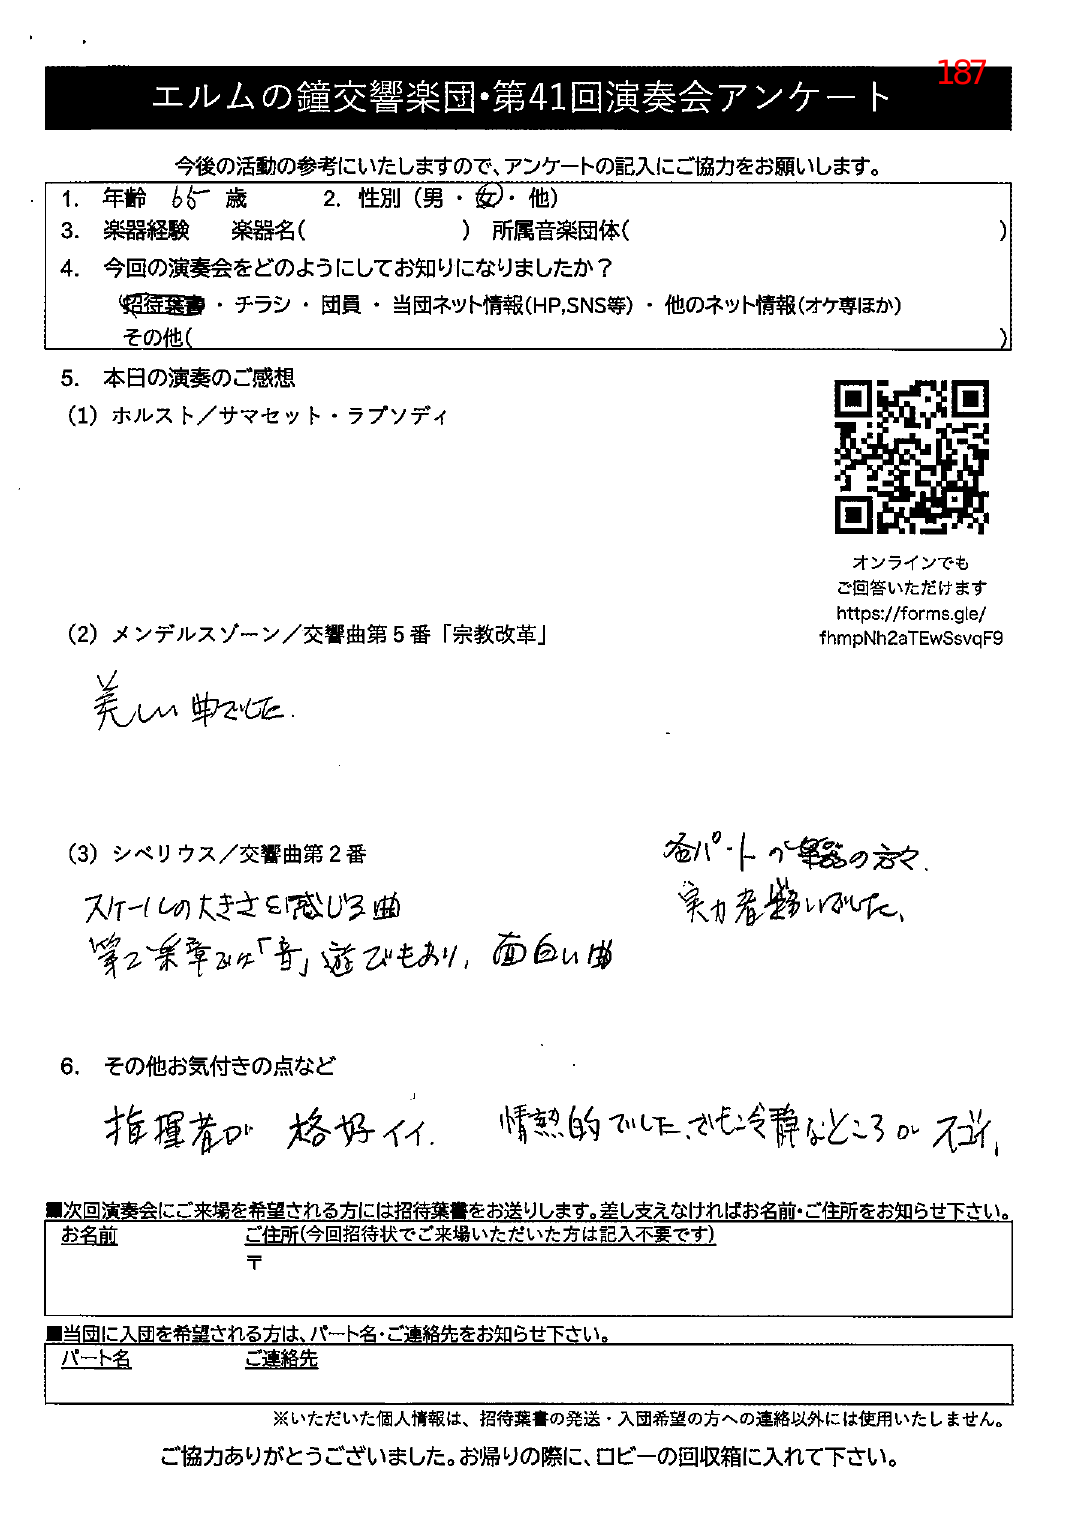 187
エルムの鐘交響楽団・第41回演奏会アンケート
今後の活動の参考にいたしますので、アンケートの記入にご協力をお願いします。
1. 年齢 65 歳 2. 性別(男・女・他)
3. 楽器経験 楽器名( ) 所属音楽団体( )
4. 今回の演奏会をどのようにしてお知りになりましたか？
招待葉書・チラシ・団員・当団ネット情報(HP,SNS等)・他のネット情報(オケ専ほか)
その他( )
5. 本日の演奏のご感想
(1) ホルスト／サマセット・ラプソディ
オンラインでも
ご回答いただけます
https://forms.gle/
fhmpNh2aTEwSsvqF9
(2) メンデルスゾーン／交響曲第５番「宗教改革」
美しい曲でした.
(3) シベリウス／交響曲第２番
各パートの楽器の方々.
実力者揃いでした、
スケールの大きさを感じる曲
第2楽章は「音」遊びもあり, 面白い曲
6. その他お気付きの点など
指揮者が 格好イイ. 情熱的でした、でも冷静なところが スゴイ,
■次回演奏会にご来場を希望される方には招待葉書をお送りします。差し支えなければお名前・ご住所をお知らせ下さい。
お名前 ご住所(今回招待状でご来場いただいた方は記入不要です)
〒
■当団に入団を希望される方は、パート名・ご連絡先をお知らせ下さい。
パート名 ご連絡先
※いただいた個人情報は、招待葉書の発送・入団希望の方への連絡以外には使用いたしません。
ご協力ありがとうございました。お帰りの際に、ロビーの回収箱に入れて下さい。